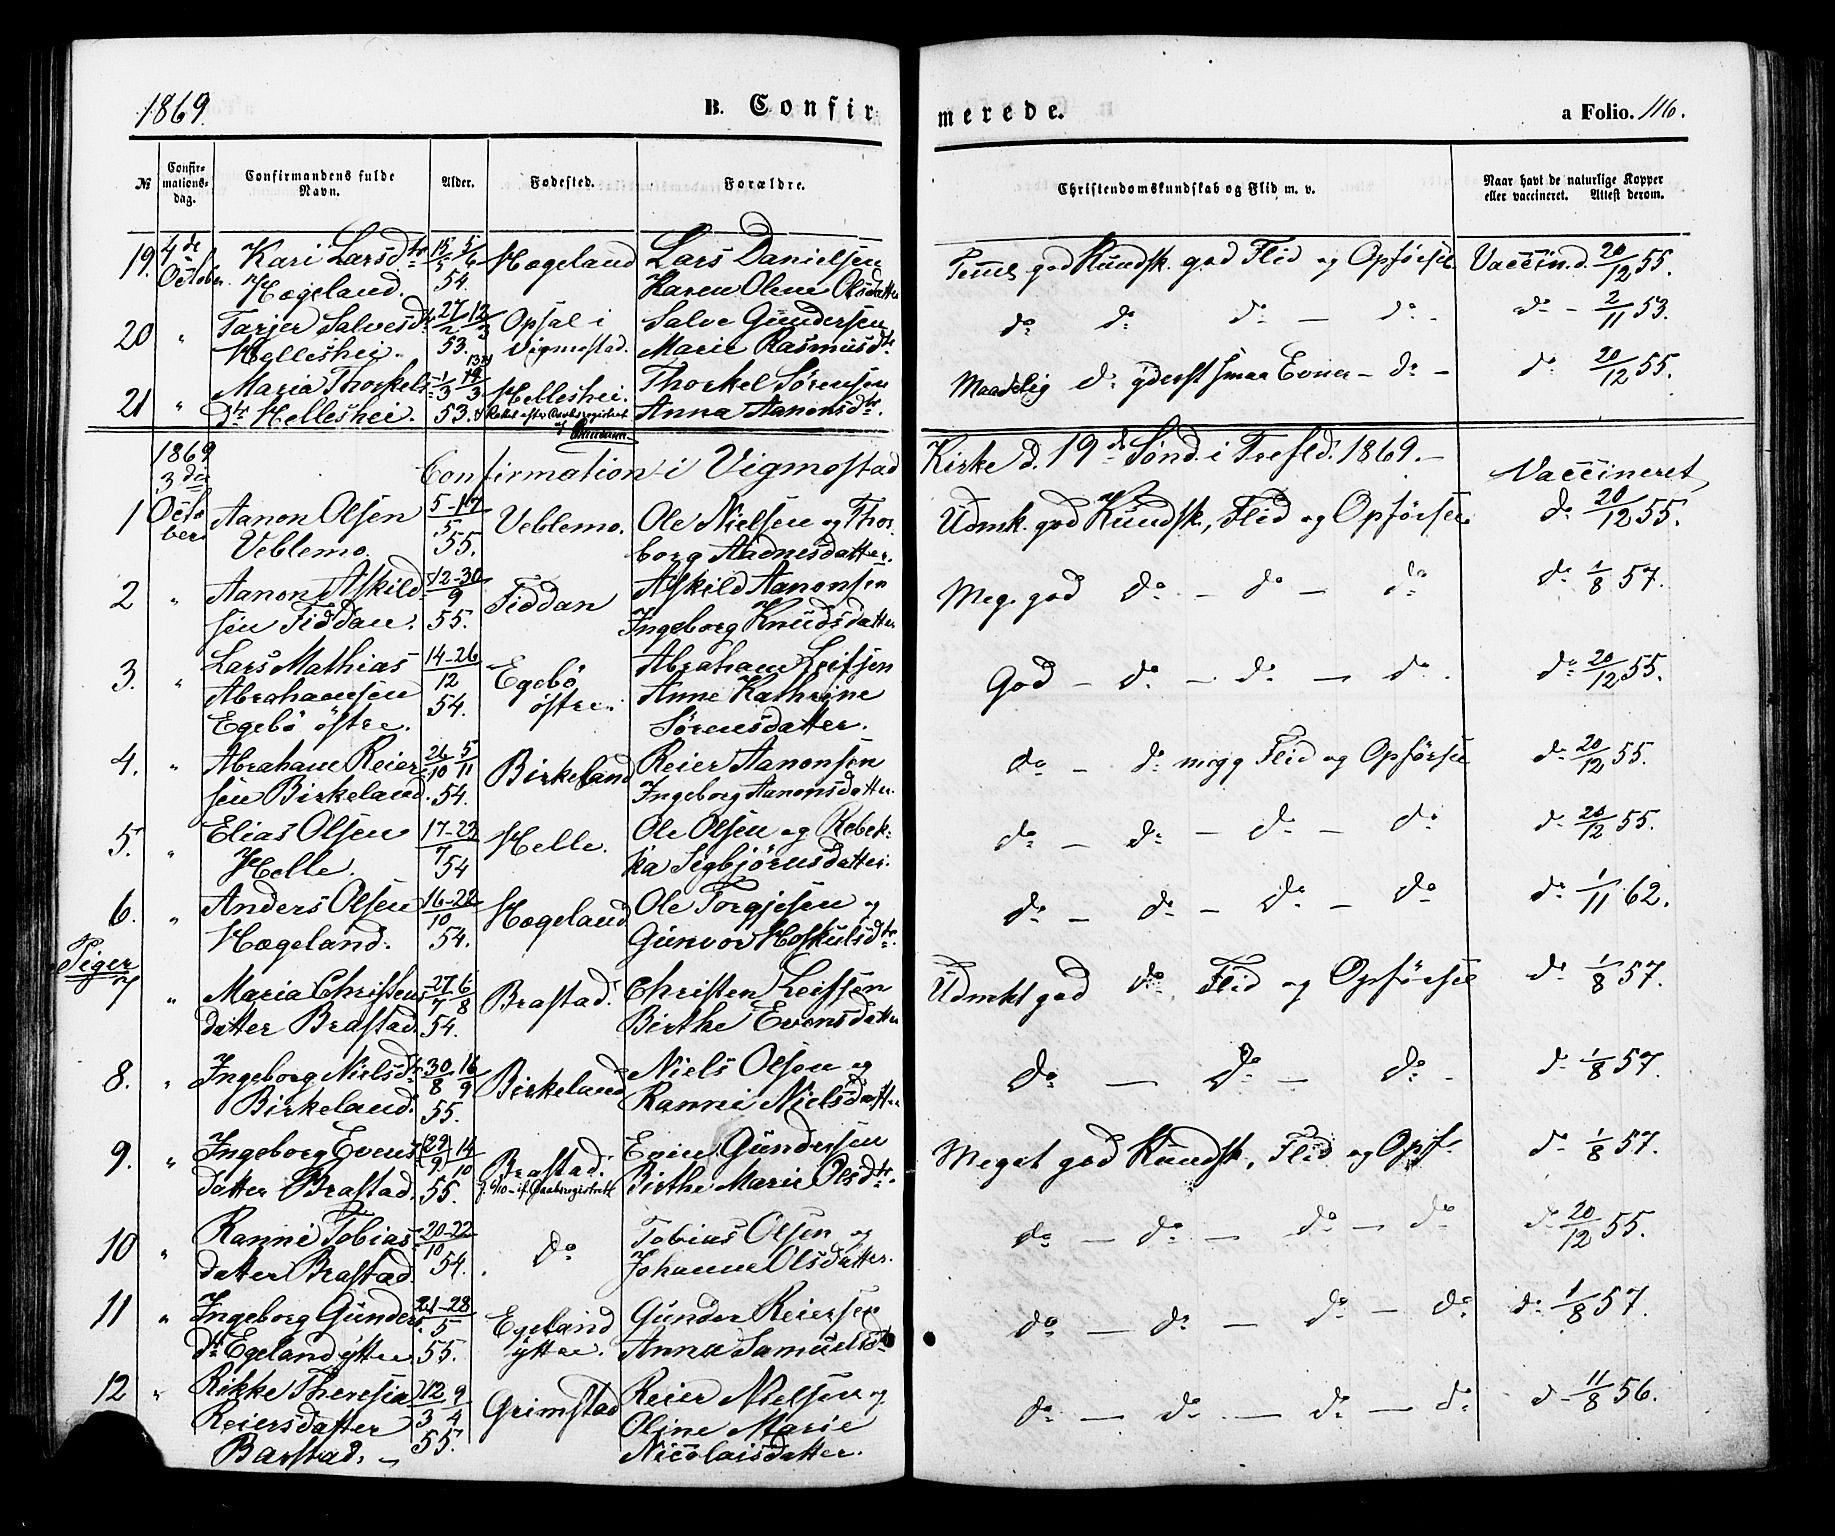 1869.
B. Confir
merede.
a Folio. 116.
№
Confir-
mations-
dag.
Confirmandens fulde
Navn.
Alder.
Fødested.
Forældre.
Christendomskundskab og Flid m. v.
Naar havt de naturlige Kopper
eller vaccineret. Attest derom.
19. 4de October. Kari Larsdtr 15/5 5/6 Hægeland Lars Danielsen god Kundsk. god Flid og Opførsel Vaccin. d. 20/12 55.
Hægeland. 54. Karen Olene Olsdatter
20 " Tarjer Salvesdtr 27/2 12/3 Opsal i Salve Gundersen do do do — do - do - 2/11 53.
Helleshei. 53. Vigmostad. Marie Rasmusdtr
21 " Maria Thorkels- Helleshei. Thorkel Sørensen Maadelig do yderst smaa Evner — do - do 20/12 55.
dtr Helleshei. 53. Anna Aanonsdtr.
1869 Confirmation i Vigmostad Kirke d. 19de Sønd. i Trefld. 1869. —
3die Vaccineret
1 October Aanon Olsen 5-17/5 Veblemo. Ole Nielsen og Thor- Udmk. god Kundsk., Flid og Opførsel do 20/12 55.
Veblemo. 55. borg Aadnesdatter.
2 " Aanon Askild- 12-30/9 Fiddan Askild Aanonsen Meg. god do - do - do do 1/8 57.
sen Fiddan. 55. Ingeborg Knudsdatter
3. " Lars Mathias 14-26/12 Egebö Abraham Leifsen God - do - do - do. do 20/12 55.
Abrahamsen 54. östre. Anne Kathrine
Egebö östre. Sørensdatter.
4. " Abraham Reier- 26/10-5/11 Birkeland Reier Aanonsen do - do megg Flid og Opførsel do 20/12 55.
sen Birkeland. 54. Ingeborg Aanonsdatter.
5. " Elias Olsen 17-22/7 Helle. Ole Olsen og Rebek- do - do - do - do do 20/12 55.
Helle. 54 ka Segbjørnsdatter.
6. " Anders Olsen 16-22/10 Hægeland Ole Torgjesen og do - do - do - do do 1/11 62.
Hægeland. 54. Gunvor Hoskulsdtr.
Piger
7 " Maria Christens- 27/7 6/8 Brastad. Christen Leifsen Udmkt god do Flid og Opførsel do 1/8 57.
datter Brastad. 54. Birthe Evensdatter
8. " Ingeborg Nielsdtr 30/8 16/9 Birkeland Niels Olsen og do — do — do - do 1/8 57.
Birkeland. 55. Ranni Nielsdatter
9. " Ingeborg Evens- 29/9 14/10 Brastad. Even Gundersen Meget god Kundsk., Flid og Opf. do 1/8 57.
datter Brastad. 55. Birthe Marie Olsdtr.
10 " Ranni Tobias- 20-22/10 do Tobias Olsen og do - do - do - do do 20/12 55.
datter Brastad. 54. Johanne Olsdatter.
11 " Ingeborg Gunders- 21-28/5 Egeland Gunder Reiersen do - do - do - do do 1/8 57.
dtr Egeland ytre. 55. ytre. Anna Samuelsdtr
12 " Rikke Theresia 12/3 9/4 Grimstad Reier Nielsen og do - do - do - do do 11/8 56.
Reiersdatter 55. Oline Marie
Barstad. — Nicolaisdatter.